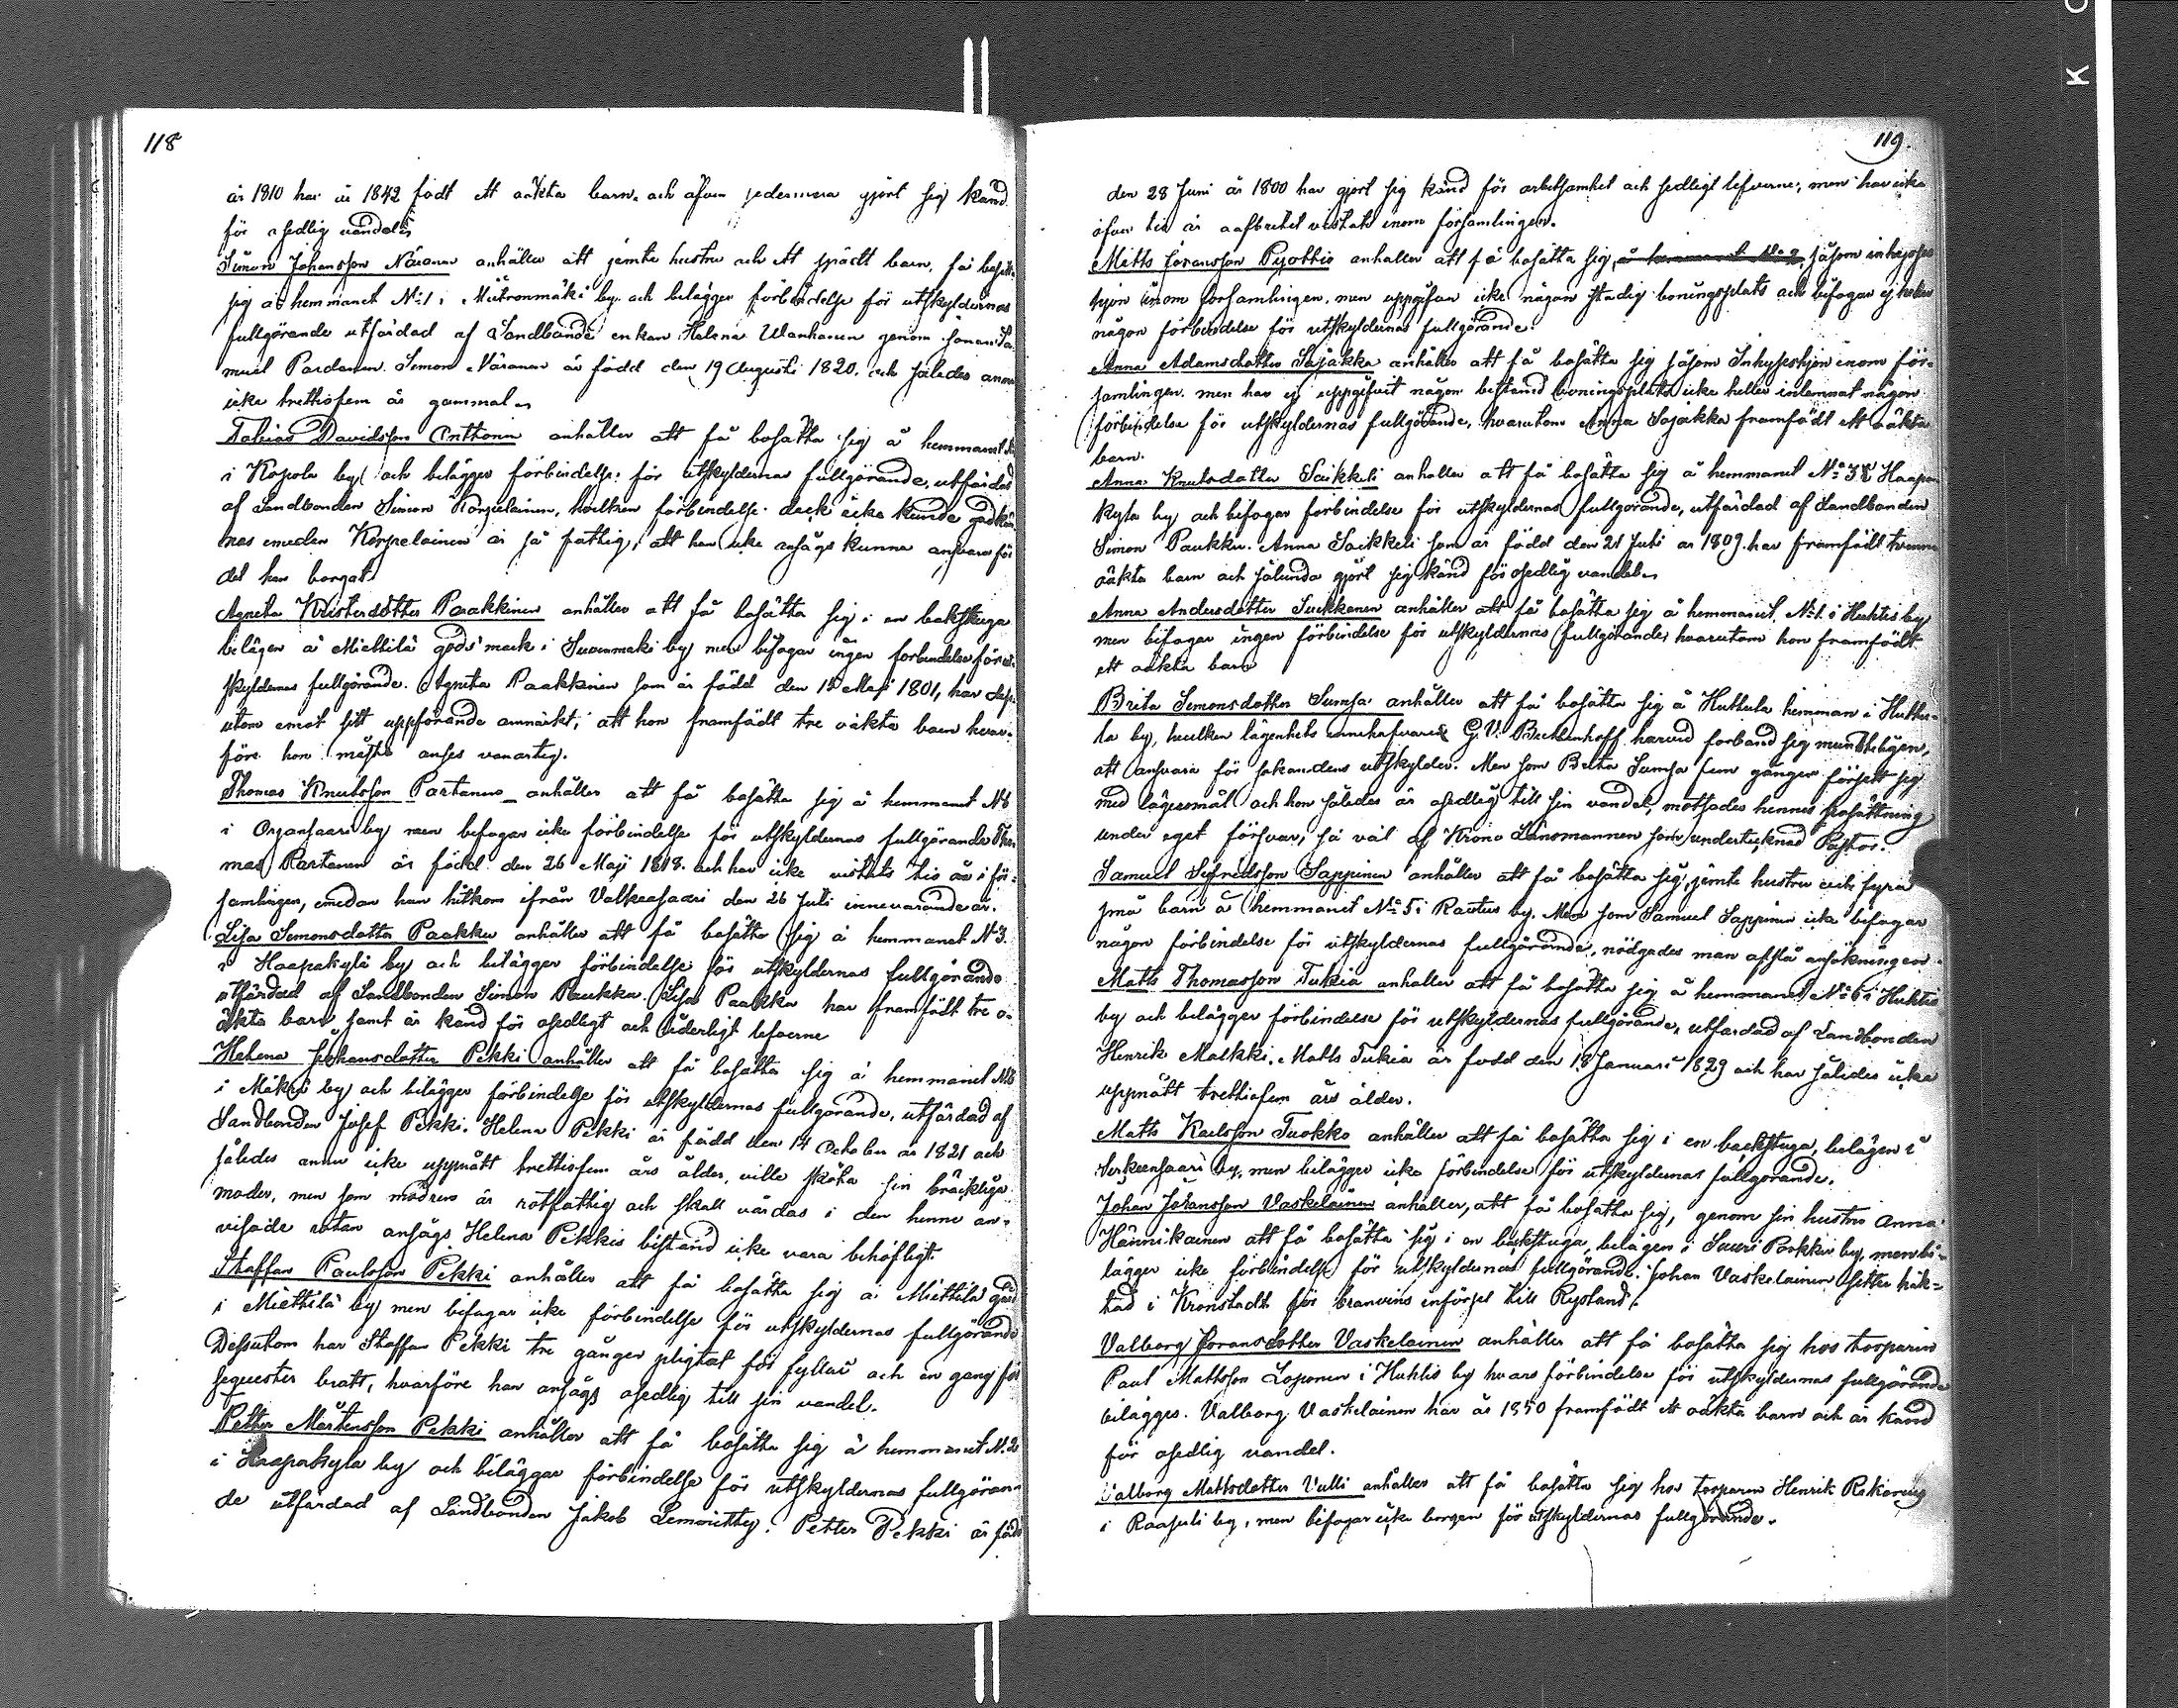 118
år 1810 har år 1842 födt ett oäkta barn, och äfven sedermera gjort sig känd
för osedlig vandel.
Simon Johansson Näränen anhåller att jemte hustru och ett spädt barn, få bosätta
sig å hemmanet No 1 i Miikronmäki by och bilägger förbindelse för utskyldernas
fullgörande utfärdad af Landbonde enkan Helena genom sonen Sa-
muel Pardanen. Simon Näränen är född den 19 Augusti 1820. och således annu
icke trettiofem år gammal.
Tobias Davidsson Anttonen anhåller att få bosätta sig å hemmanet No
i Kopola by och bilägger förbindelse för utskyldernas fullgörande, utfärdad
af Landbonden Simon Korpelainen, hvilken förbindelse dock icke kunde godkän-
nas emedan Korpelainen är så fattig, att han icke ansågs kunna ansvara för
det han borgat.
Agneta Kristersdotter Paakkinen anhåller att få bosätta sig i en backstuga
belägen å Miettilä gods' mark i Suvenmäki by men bifogar ingen förbindelse för ut-
skyldernas fullgörande. Agneta Paakkinen som är född den 15 Maji 1801, har dess
utom emot sitt uppförande anmärkt, att hon framfödt tre oäkta barn hvar-
före hon måste anses vanartig.
Thomas Knutsson Partanen anhåller att få bosätta sig å hemmanet No 6
i Orjansaari by men bifogar icke förbindelse för utskyldernas fullgörande Tho-
mas Partanen är född den 26 Maji 1818. och har icke vistats tio år i för-
samlingen, emedan han hitkom ifrån Valkeasaari den 26 Juli innevarande år.
Lisa Simonsdotter Paukku anhåller att få bosätta sig å hemmanet No 3.
i Haapakylä by och bilägger förbindelse för utskyldernas fullgörande
utfärdad af Landbonden Simon Paukku. Lisa Paukku har framfödt tre o-
äkta barn samt är känd för osedligt och liderligt lefverne
Helena Johansdotter Pekki anhåller att få bosätta sig å hemmanet No 6
i Mäkrä by och bilägger förbindelse för utskyldernas fullgörande, utfärdad af
Landbonden Josef Pekki. Helena Pekki är född den 14 October år 1821 och
således annu icke uppnått trettiofem års ålder, ville sköta sin bräckliga
moder, men som modren är rotfattig och skall vårdas i den henne an-
visade rotan ansågs Helena Pekkis bistånd icke vara behöfligt.
Staffan Paulsson Pekki anhåller att få bosätta sig å Miettilä gård
i Miettilä by men bifogar icke förbindelse för utskyldernas fullgörande
Dessutom har Staffan Pekki tre gånger pligtat för fylleri och en gång för
sequester brott, hvarföre han ansågs osedlig till sin vandel.
Petter Mårtensson Pekki anhåller att få bosätta sig å hemmanet No 2
i Haapakylä by och bilägger förbindelse för utskyldernas fullgöran-
de utfärdad af Landbonden Jakob Lemmitty. Petter Pekki är född
119.
den 28 Juni år 1800 har gjort sig känd för arbetsamhet och sedligt lefverne, men har icke
öfver tio år oafbrutet vistats inom församlingen.
Matts Göransson Pyöttiö anhåller att få bosätta sig, å hemmanet No 2, såsom inhyses
hjon inom församlingen, men uppgifver icke någon stadig boningsplats och bifogar ej heller
någon förbindelse för utskyldernas fullgörande.
Anna Adamsdotter Sajakka anhåller att få bosätta sig såsom Inhyseshjon inom för-
samlingen. men har ej uppgifvit någon bestämd boningsplats icke heller inlemnat någon
förbindelse för utskyldernas fullgörande, hvarutom Anna Sajakka framfödt ett oäkta
barn.
Anna Knutsdotter Saikkeli anhåller att få bosätta sig å hemmanet No 3 i Haapa-
kyla by och bifogar förbindelse för utskyldernas fullgörande, utfärdad af Landbonden
Simon Paukku. Anna Saikkeli som är född den 21 Juli år 1809. har framfödt tvenne
oäkta barn och sålunda gjort sig känd för osedlig vandel.
Anna Andersdotter Suikkanen anhåller att få bosätta sig å hemmanet No 1. i Huhtis by
men bifogar ingen förbindelse för utskyldernas fullgörande, hvarutom hon framfödt
ett oäkta barn
Brita Simonsdotter Sumsa anhåller att få bosätta sig å Huttula hemman i Huttu-
la by, hvilken lägenhets innehafvare G. V. harvid förband sig mundteligen,
att ansvara för sökandens utskylder. Men som Brita Sumsa fem gånger försett sig
med lägersmål och hon således är osedlig till sin vandel, motsades hennes bosättning
under eget försvar, så väl af Krono Länsmannen som undertecknad Pastor.
Samuel Sigfredsson Sappinen anhåller att få bosätta sig, jemte hustru och fyra
små barn å hemmanet No 5 i Rautus by. Men som Samuel Sappinen icke bifogar
någon förbindelse för utskyldernas fullgörande, nödgades man afslå ansökningen.
Matts Thomasson Tukia anhåller att få bosätta sig å hemmanet No 6 i Huhtis
by och bilägger förbindelse för utskyldernas fullgörande, utfärdad af Landbonden
Henrik Malkki. Matts Tukia är född den 18 Januari 1829 och har således icke
uppnått trettiofem års ålder.
Matts Karlsson Tuokko anhåller att få bosätta sig i en backstuga, belägen i
Serkeensaari by, men bilägger icke förbindelse för utskyldernas fullgörande.
Johan Johansson Vaskelainen anhåller, att få bosätta sig, genom sin hustru Anna
Hännikainen att få bosätta sig i en backstuga, belägen i Suuri Porkku by, men bi-
lägger icke förbindelse för utskyldernas fullgörande. Johan Vaskelainen sitter häk-
tad i Kronstadt för branvins införsel till Ryssland.
Valborg Göransdotter Vaskelainen anhåller att få bosätta sig hos torparen
Paul Mattsson Loponen i Huhtis by hvars förbindelse för utskyldernas fullgörande
bilägges. Valborg Vaskelainen har år 1850 framfödt ett oäkta barn och är känd
för osedlig vandel.
Valborg Mattsdotter Vulli anhåller att få bosätta sig hos torparen Henrik
i Raasuli by, men bifogar icke borgen för utskyldernas fullgörande.